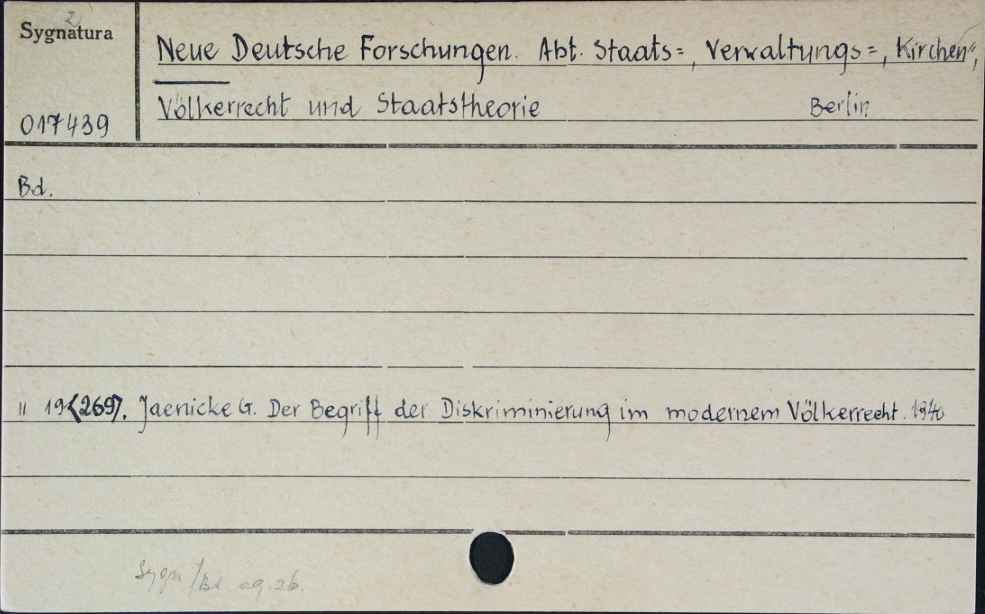 Sygnatura
2
017439
Neue Deutsche Forschungen. Abt. Staats=, Verwaltungs=, Kirchen",
Völkerrecht und Staatstheorie Berlin
Bd.
" 19(269). Jaenicke G. Der Begriff der Diskriminierung im modernem Völkerrecht. 1940
Sygn/Bd